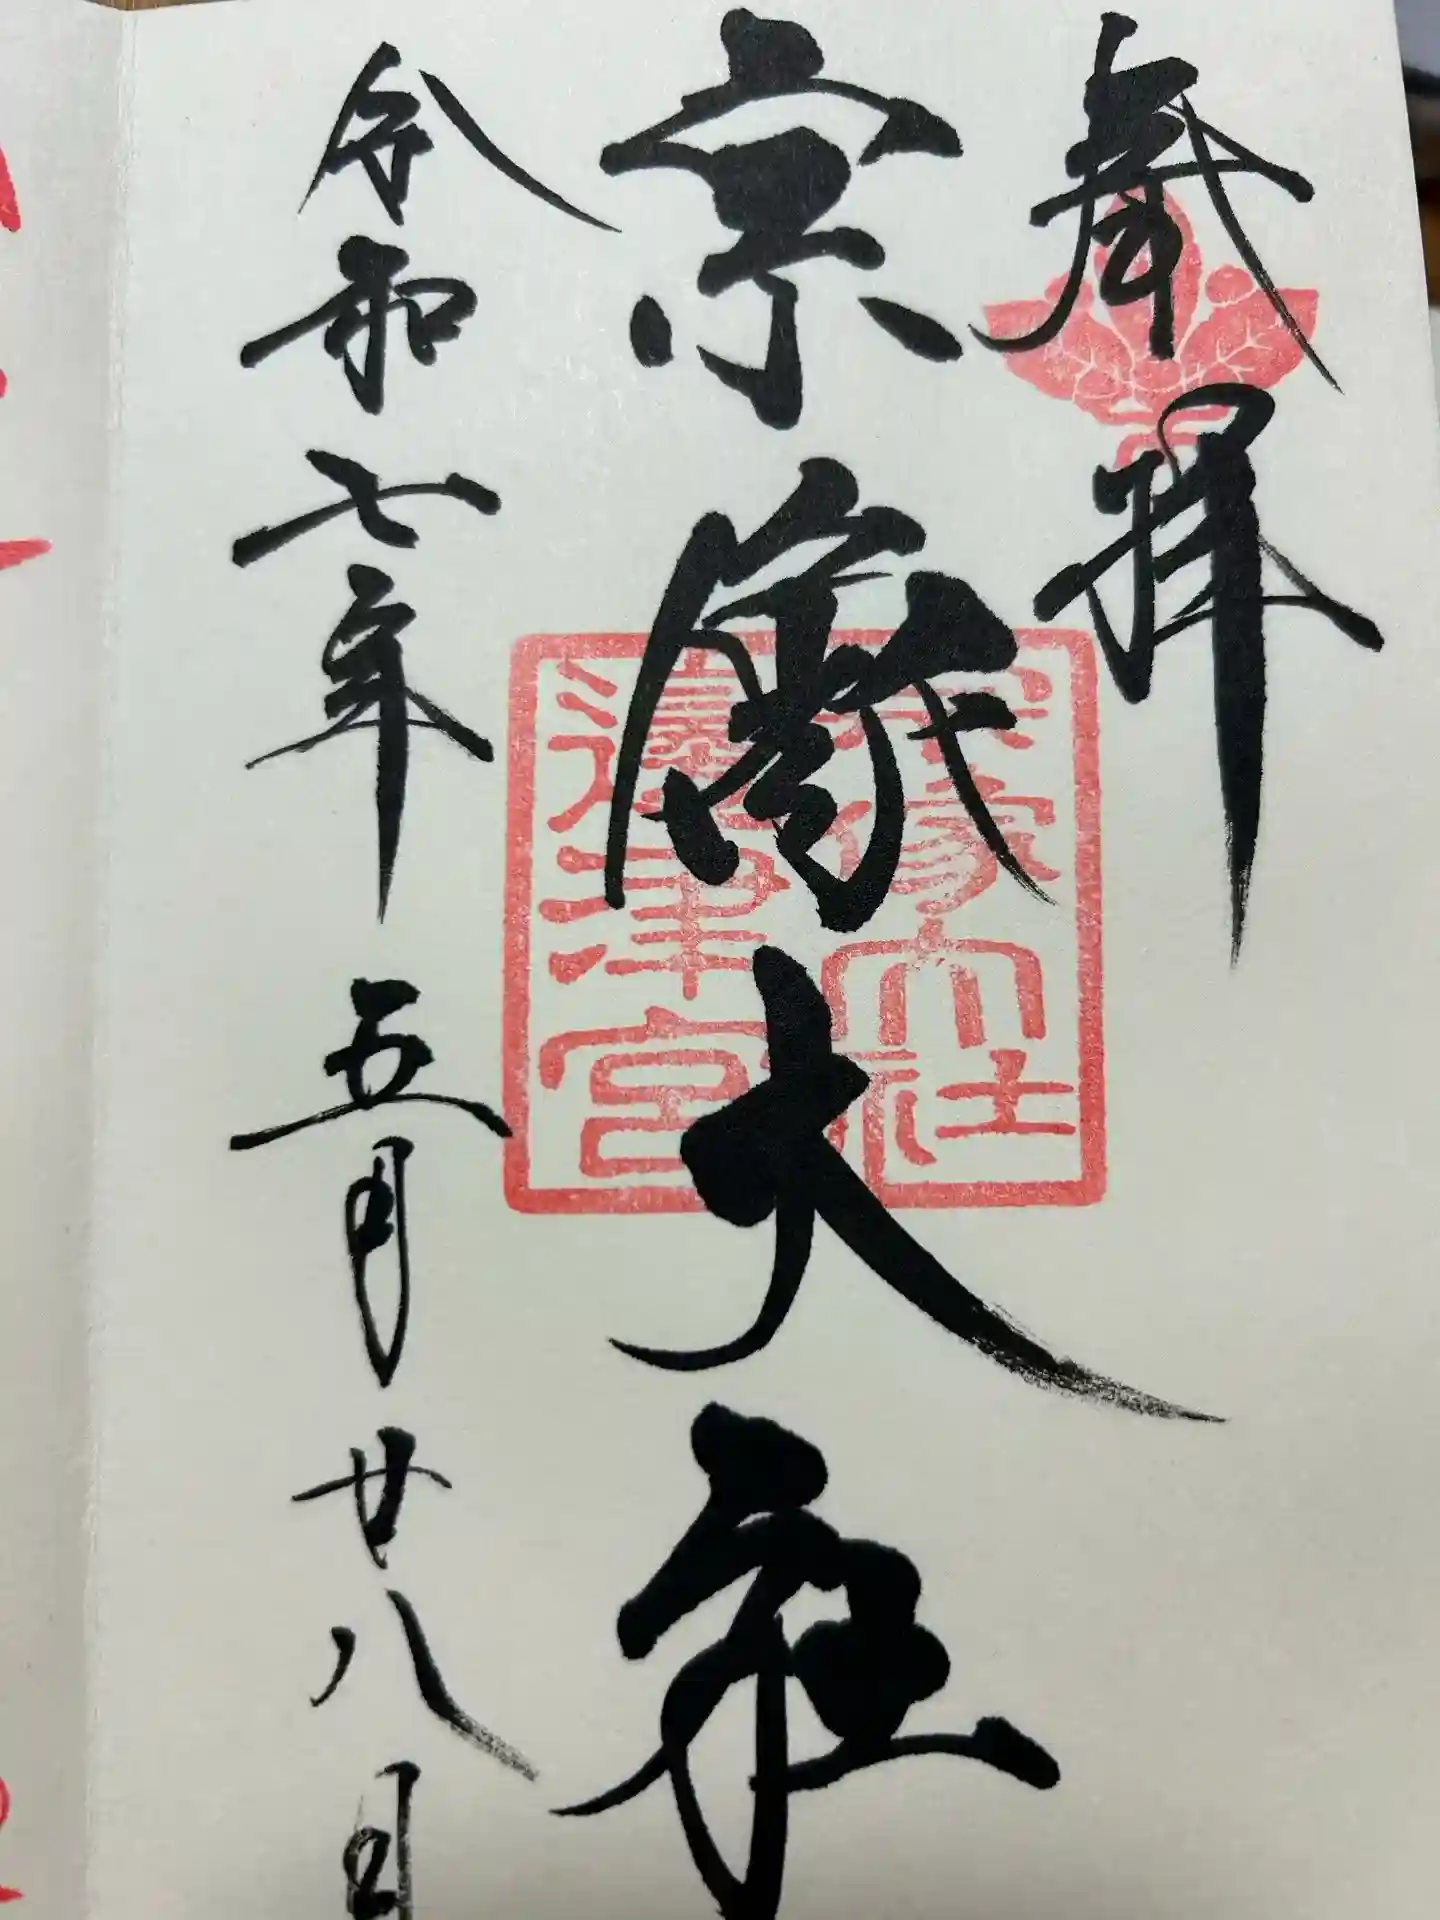 奉拝
宗像大社
令和七年 五月 廿八日
宗像大社
邊津宮